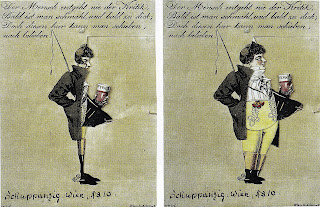 Der Mensch entgeht nie der Kritik,
Bald ist man schmächl und bald zu dick;
Doch diesen hier kann man schieben,
nach belieben
Schuppanzig. Wien, 1810.
Der Mensch entgeht nie der Kritik,
Bald ist man schmächl und bald zu dick;
Doch diesen hier kann man schieben,
nach belieben
Schuppanzig. Wien, 1810.